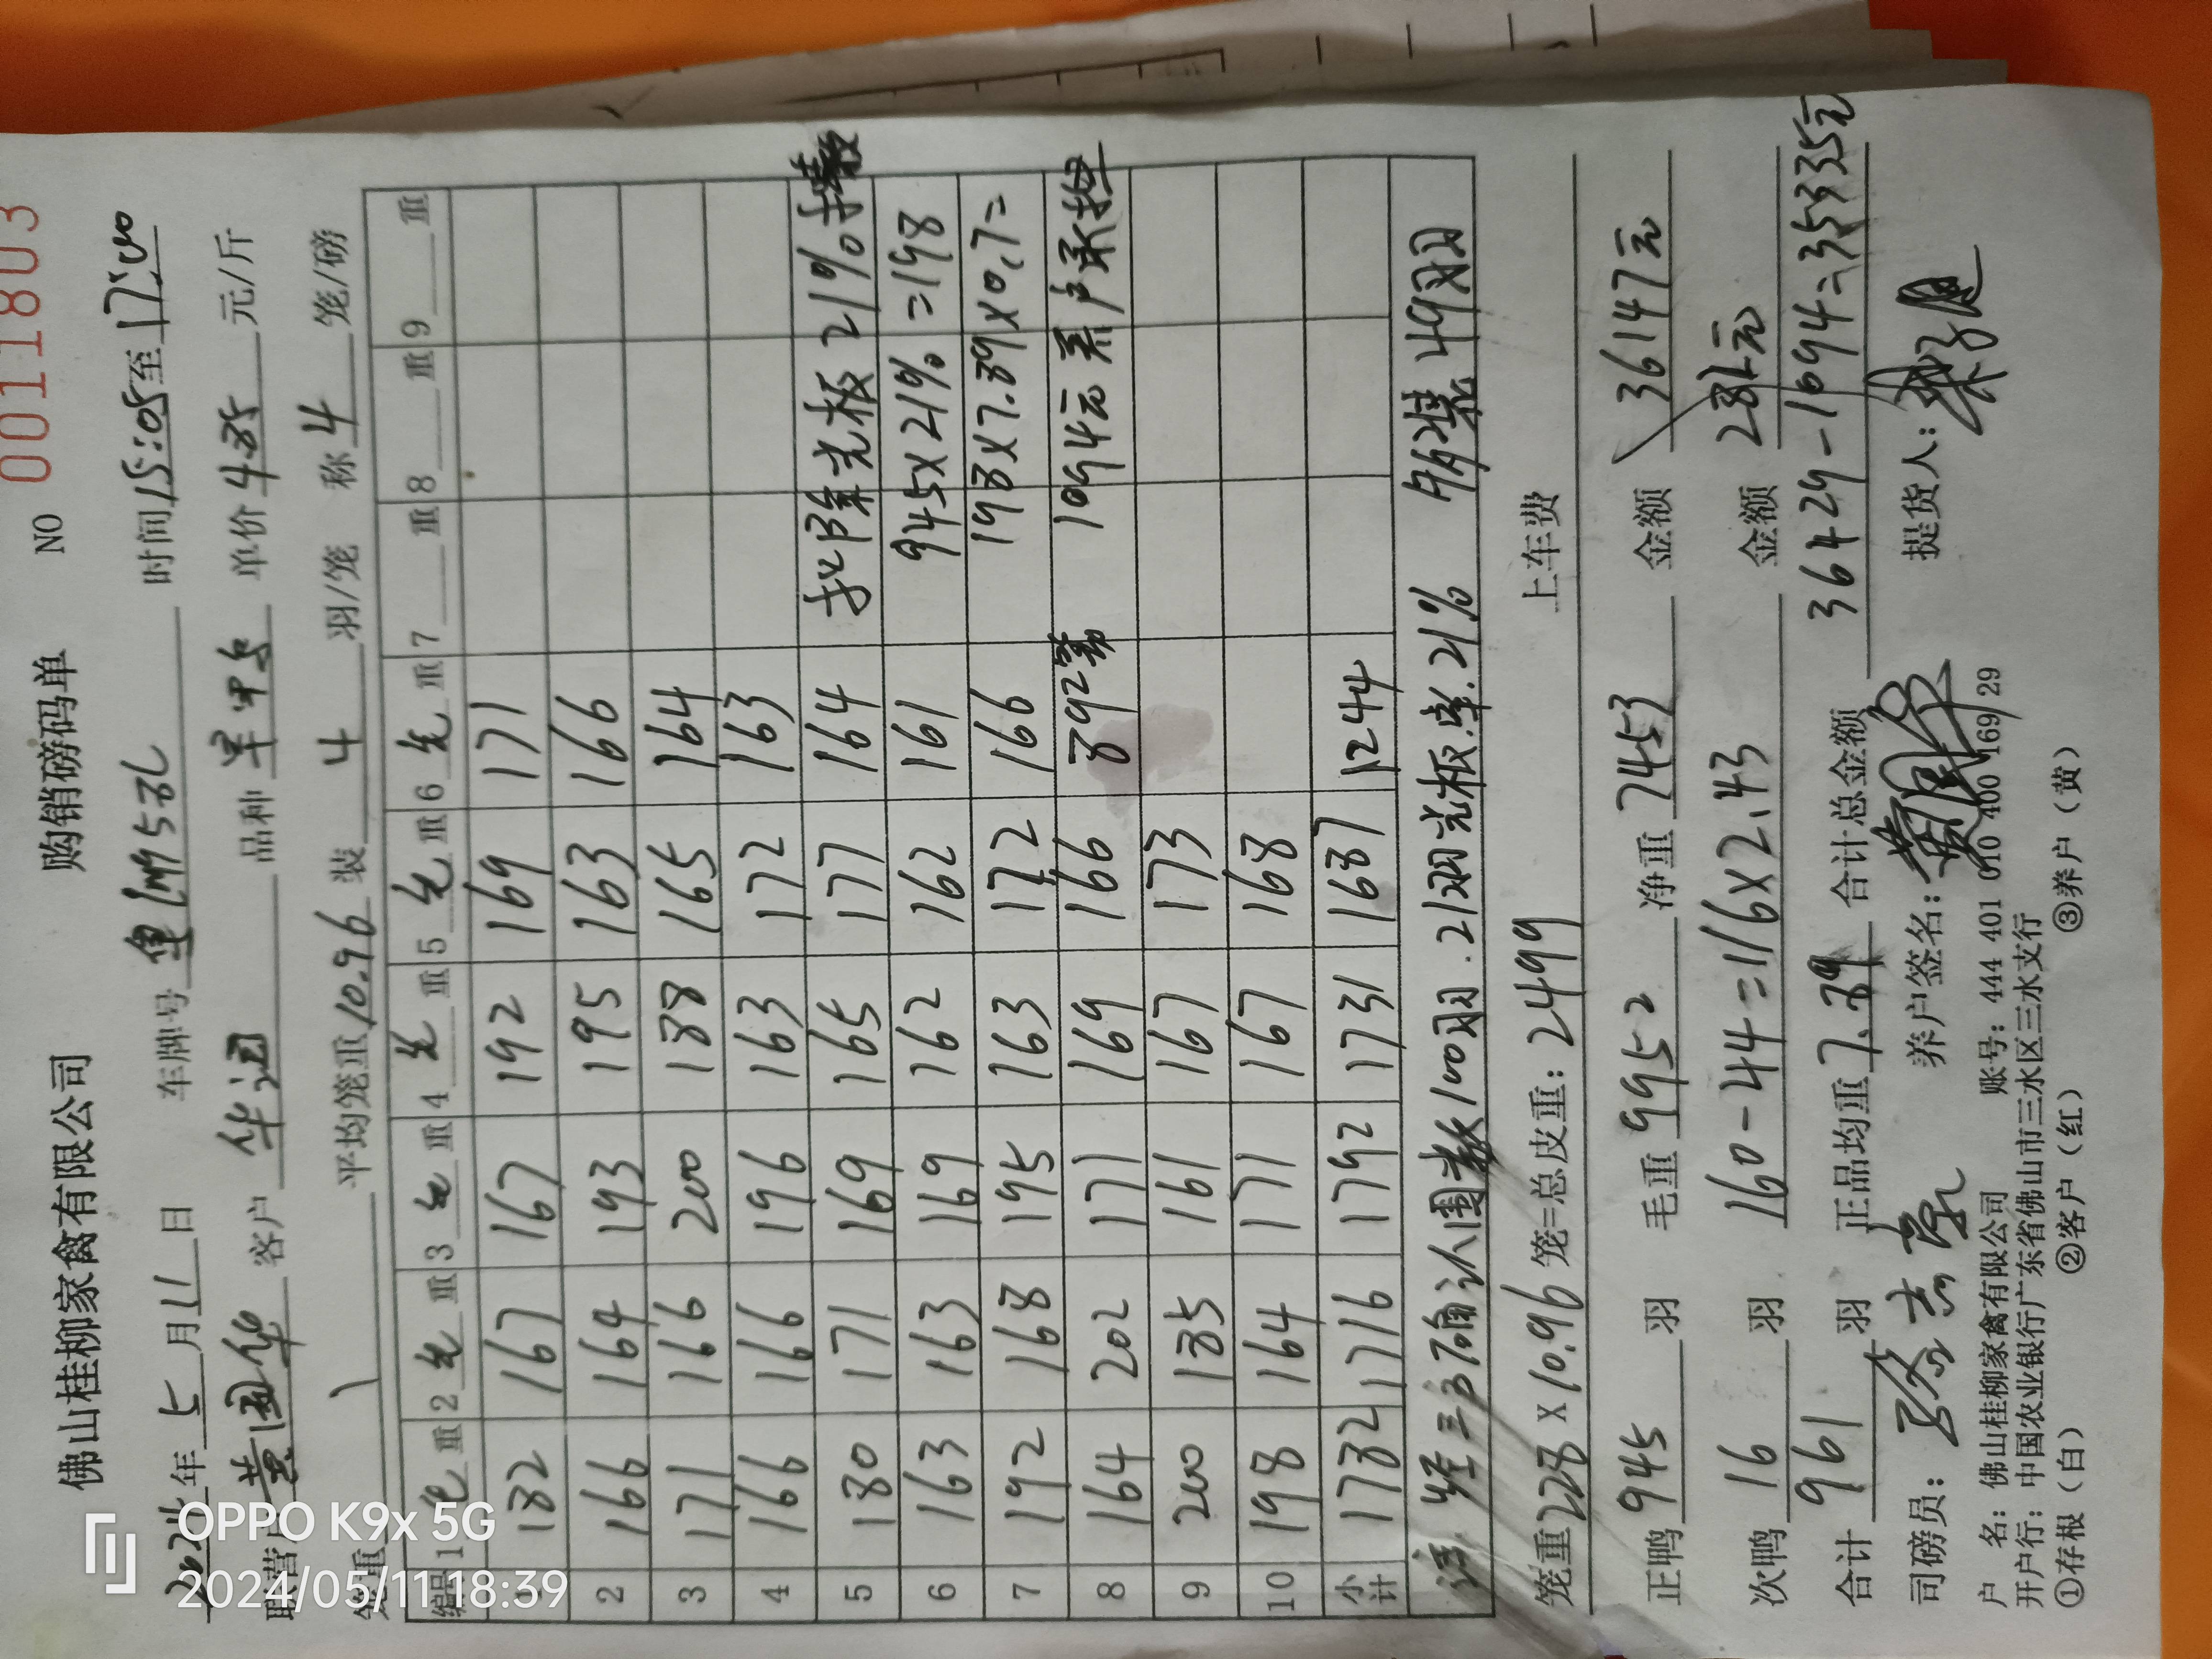 佛山桂柳家禽有限公司 购销磅码单 NO 0011803
2024年5月11日 车牌号 时间15:05至17:00
联营户黄国华 客户 品种 单价4.85元/斤
笼重 平均笼重10.96 装4羽/笼 称4笼/磅
编号 1毛重 2毛重 3毛重 4毛重 5毛重 6毛重 7重 8重 9重
1 182 167 167 192 169 171
2 166 164 193 195 163 166
3 171 166 200 188 165 164
4 166 166 196 163 172 163
5 180 171 169 165 177 164 扣除光板21%
6 163 163 169 162 162 161 945×21%=198
7 192 168 195 163 172 166 198×7.89×0.7=
8 164 202 171 169 166 8.92 1094元养户承担
9 200 185 161 167 173
10 198 164 171 167 168
小计 1782 1716 1792 1731 1687 1244
注 经三方确认围数100羽.21羽光板.率.21% 装49羽
笼重228×10.96笼=总皮重:2499 上车费
正鸭945羽 毛重9952 净重7453 金额36147元
次鸭16羽 160-44=116×2.43 金额281元
合计961羽 正品均重7.89 合计总金额 36429-1094=35335元
司磅员: 养户签名: 提货人:
户 名:佛山桂柳家禽有限公司 账号:444 401 010 400 169/29
开户行:中国农业银行广东省佛山市三水区三水支行
①存根(白) ②客户(红) ③养户(黄)
OPPO K9x 5G
2024/05/11 18:39